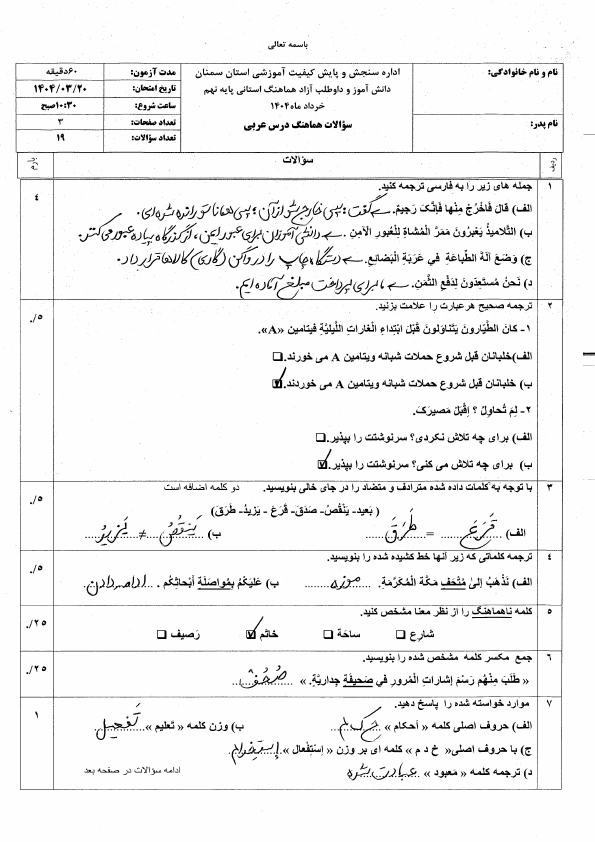 باسمه تعالی
نام و نام خانوادگی:
اداره سنجش و پایش کیفیت آموزشی استان سمنان
مدت آزمون: ۶۰دقیقه
دانش آموز و داوطلب آزاد هماهنگ استانی پایه نهم
تاریخ امتحان: ۱۴۰۴/۰۳/۲۰
خرداد ماه۱۴۰۴
ساعت شروع: ۱۰:۳۰صبح
نام پدر:
سؤالات هماهنگ درس عربی
تعداد صفحات: ۳
تعداد سؤالات: ۱۹
ردیف سؤالات بارم
۱ جمله های زیر را به فارسی ترجمه کنید. ٤
الف) قالَ فَاخْرُجْ مِنْها فَإِنَّكَ رَجیمٌ. گفت: پس خارج شو از آن؛ پس همانا تو رانده شده ای.
ب) التَّلامیذُ یَعْبُرُونَ مَمَرَّ الْمُشاةِ لِلْعُبورِ الْآمِنِ. دانش آموزان برای عبور ایمن، از گذرگاه پیاده عبور می کنند.
ج) وَضَعَ آلَةَ الطِّباعَةِ في عَرَبَةِ الْبَضائِعِ. دستگاه چاپ را در واگن (گاری) کالاها قرار داد.
د) نَحْنُ مُسْتَعِدّونَ لِدَفْعِ الثَّمَنِ. ما برای پرداخت مبلغ آماده ایم.
۲ ترجمه صحیح هرعبارت را علامت بزنید. ۰/۵
۱- كانَ الطَّیّارونَ یَتَناوَلونَ قَبْلَ ابْتِداءِ الْغاراتِ اللَّیْلِیَّةِ فیتامین «A».
الف)خلبانان قبل شروع حملات شبانه ویتامین A می خورند.
ب) خلبانان قبل شروع حملات شبانه ویتامین A می خوردند.
۲- لِمَ تُحاوِلُ ؟ اِقْبَلْ مَصیرَكَ.
الف) برای چه تلاش نکردی؟ سرنوشتت را بپذیر.
ب) برای چه تلاش می کنی؟ سرنوشتت را بپذیر.
۳ با توجه به کلمات داده شده مترادف و متضاد را در جای خالی بنویسید. دو کلمه اضافه است ۰/۵
( بَعید- یَنْقُصُ- صَدَقَ- قَرَعَ - یَزیدُ- طَرَقَ)
الف) قَرَعَ = طَرَقَ ب) یَنْقُصُ ≠ یَزیدُ
٤ ترجمه کلماتی که زیر آنها خط کشیده شده را بنویسید. ۰/۵
الف) نَذْهَبُ إلیٰ مُتْحَفِ مَكَّةَ الْمُكَرَّمَةِ. موزه ب) عَلَیْكُم بِمُواصَلَةِ أبْحاثِكُم . ادامه دادن
۵ کلمه ناهماهنگ را از نظر معنا مشخص کنید. ۰/۲۵
شارِع ساحَة خاتَم رَصیف
۶ جمع مکسر کلمه مشخص شده را بنویسید. ۰/۲۵
« طَلَبَ مِنْهُم رَسْمَ إشاراتِ الْمُرورِ في صَحیفَةٍ جِداریَّةٍ. » صُحُف
۷ موارد خواسته شده را پاسخ دهید. ۱
الف) حروف اصلی کلمه « أحکام » ح ک م ب) وزن کلمه « تعلیم » تَفعیل
ج) با حروف اصلی« خ د م » کلمه ای بر وزن « اِسْتِفْعال » إستِخدام
د) ترجمه کلمه « معبود » عبادت شده
ادامه سؤالات در صفحه بعد